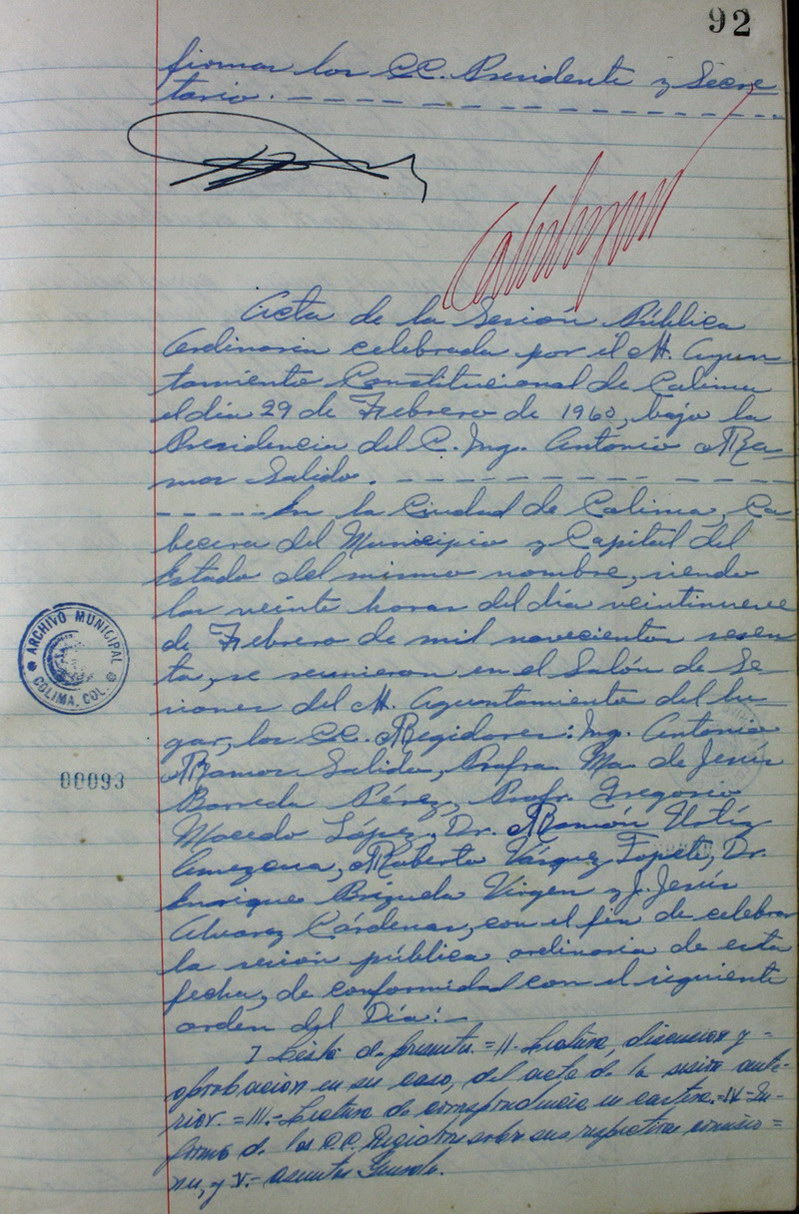 92
firman los CC. Presidente y Secre
tario. - - - - - - - - - - - - - - - -
Acta de la Sesión Pública
Ordinaria celebrada por el H. Ayun-
tamiento Constitucional de Colima
el día 29 de Febrero de 1960, bajo la
Presidencia del C. Ing. Antonio Ra-
mos Salido. - - - - - - - - - - - -
- - - - - En la Ciudad de Colima, Ca-
becera del Municipio y Capital del
Estado del mismo nombre, siendo
las veinte horas del día veintinueve
de Febrero de mil novecientos sesen-
ta, se reunieron en el Salón de Se-
siones del H. Ayuntamiento del lu-
gar, los CC. Regidores: Ing. Antonio
Ramos Salido, Profra. Ma. de Jesús
Barreda Pérez, Profr. Gregorio
Macedo López, Dr. Ramón Ortíz
Amezcua, Roberto Vázquez Topete, Dr.
Enrique Brizuela Virgen y J. Jesús
Alvarez Cárdenas, con el fin de celebrar
la sesión pública ordinaria de esta
fecha, de conformidad con el siguiente
orden del Día:-
I Lista de presentes.=II.- Lectura, discusión y -
aprobación en su caso, del acta de la sesión ante-
rior.=III.- Lectura de correspondencia en cartera.=IV=In-
forme de los C.C. Regidores sobre sus respectivas comisio=
nes, y V.- asuntos Generales.
ARCHIVO MUNICIPAL
COLIMA, COL.
00093